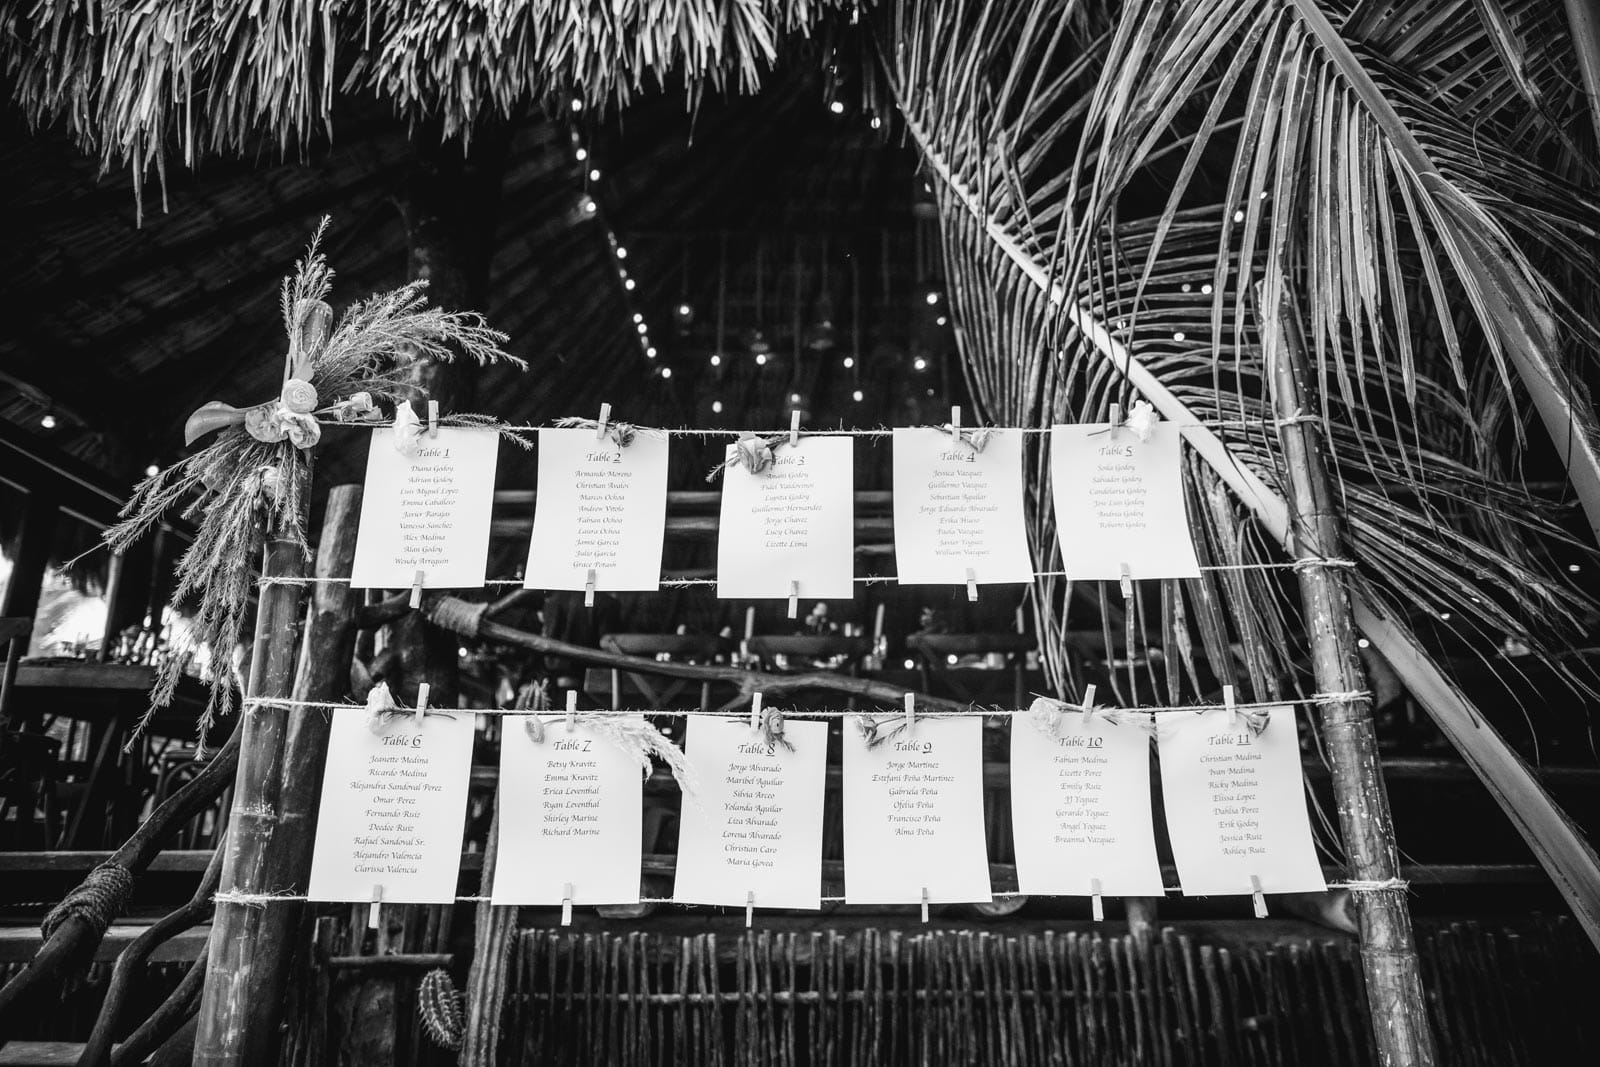 Table 1
Diana Godoy
Adrian Godoy
Luis Myguel Lopez
Emma Caballero
Javier Barajas
Vanessa Sanchez
Alex Medina
Alan Godoy
Wendy Arreguin
Table 2
Armando Moreno
Christian Avalos
Marcos Ochoa
Andrew Vitolo
Fabian Ochoa
Laura Ochoa
Jamie Garcia
Julio Garcia
Grace Potash
Table 3
Anahi Godoy
Fidel Valdovinos
Lupita Godoy
Guillermo Hernandez
Jorge Chavez
Lucy Chavez
Lizette Lima
Table 4
Jessica Vazquez
Guillermo Vazquez
Sebastian Aguilar
Jorge Eduardo Alvarado
Erika Huaso
Paola Vazquez
Javier Yoguez
William Vazquez
Table 5
Soila Godoy
Salvador Godoy
Candelaria Godoy
Jose Luis Godoy
Andrea Godoy
Roberto Godoy
Table 6
Jeanette Medina
Ricardo Medina
Alejandra Sandoval Perez
Omar Perez
Fernando Ruiz
Deedee Ruiz
Rafael Sandoval Sr.
Alejandro Valencia
Clarissa Valencia
Table 7
Betsy Kravitz
Emma Kravitz
Erica Leventhal
Ryan Leventhal
Shirley Marine
Richard Marine
Table 8
Jorge Alvarado
Maribel Aguilar
Silvia Arceo
Yolanda Aguilar
Liza Alvarado
Lorena Alvarado
Christian Caro
Maria Govea
Table 9
Jorge Martinez
Estefani Peña Martinez
Gabriela Peña
Ofelia Peña
Francisco Peña
Alma Peña
Table 10
Fabian Medina
Lizette Perez
Emily Ruiz
JJ Yoguez
Gerardo Yoguez
Angel Yoguez
Breanna Vazquez
Table 11
Christian Medina
Ivan Medina
Ricky Medina
Elissa Lopez
Dahlia Perez
Erik Godoy
Jessica Ruiz
Ashley Ruiz